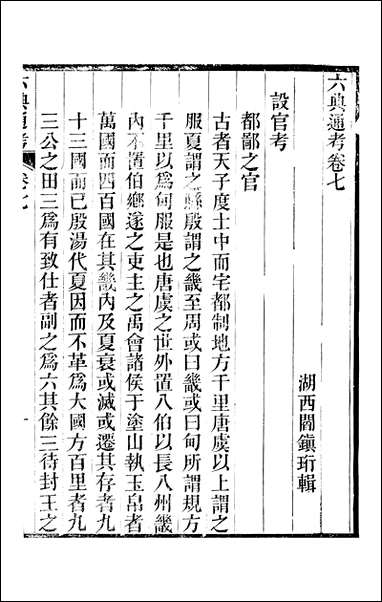 六典通考卷七
湖西閻鎭珩輯
設官考
都鄙之官
古者天子度土中而宅都制地方千里唐虞以上謂之
服夏謂之縣殷謂之畿至周或曰畿或曰甸所謂規方
千里以爲甸服是也唐虞之世外置八伯以長八州畿
內不置伯鄉遂之吏主之禹會諸侯于塗山執玉帛者
萬國而四百國在其畿內及夏衰或滅或遷其存者九
十三國而已殷湯代夏因而不革爲大國方百里者九
三公之田三爲有致仕者副之爲六其餘三待封王之
六典通考
卷七
一